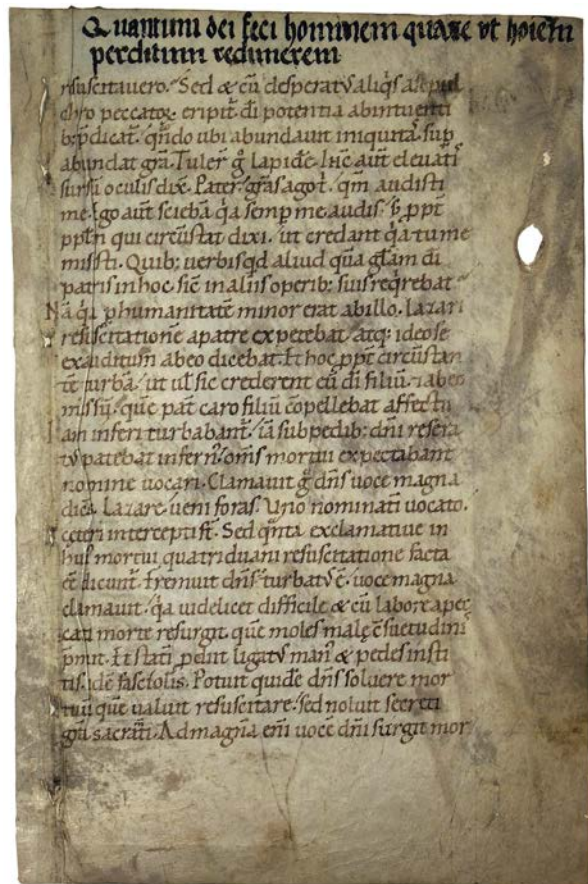 Quantum dei feci hominem quare ut hoiem
perditum redimerem
resuscitauero. Sed & cū desperatꝰ aliq̇s a sepul
chro peccatoꝝ eripit᷑ di potentia ab intuenti
b; p̄dicat᷑. qn̄do ubi abundauit iniquitas sup
abundat gr̄a. Tuler̄ g̊ lapidē. Ihc̄ aut̄ eleuatis
sursū oculis dix̄. Pater gr̄as ago t̄. qm̄ audisti
me. Ego aut̄ sciebā q̇a semp me audis. s; ppt̄
pplm̄ qui circūstat dixi. ut credant q̇a tu me
misisti. Quib; uerbis qd aliud quā glām di
patris in hoc. sic̄ in aliis operib; suis req̇rebat
Nā q̇a p humanitatē minor erat ab illo. Lazari
resuscitationē a patre expetebat. atq; ideo se
exauditum ab eo dicebat. Et hoc ppt̄ circūstan
tē turbā. ut ul̄ sic crederent eū di filiū. ⁊ ab eo
missū. que pat̄ caro filiū cōpellebat affectu
Iam inferi turbabant᷑. iā sub pedib; dn̄i resera
tꝰ patebat infern᷑. om̄s mortui expectabant
nomine uocari. Clamauit g̊ dn̄s uoce magna
dicē. Lazare. ueni foras. Uno nominati uocato.
ceteri intercepti st̄. Sed q̄nta exclamatiue in
huiꝰ mortui quatriduani resuscitatione facta
eē dicunt᷑. Fremuit dn̄s. turbatꝰ ē. uoce magna
clamauit. q̇a uidelicet difficile & cū labore a pec
cati morte resurgit. quē moles male cōsuetudinis
p̄mit. Et statī pdiit ligatꝰ manꝰ & pedes insti
tis. idē fasciolis. Potuit quidē dn̄s soluere mor
tuū quē ualuit resuscitare. sed noluit secreti
sacram̄ti. Ad magnā eni uocē dn̄i surgit mor